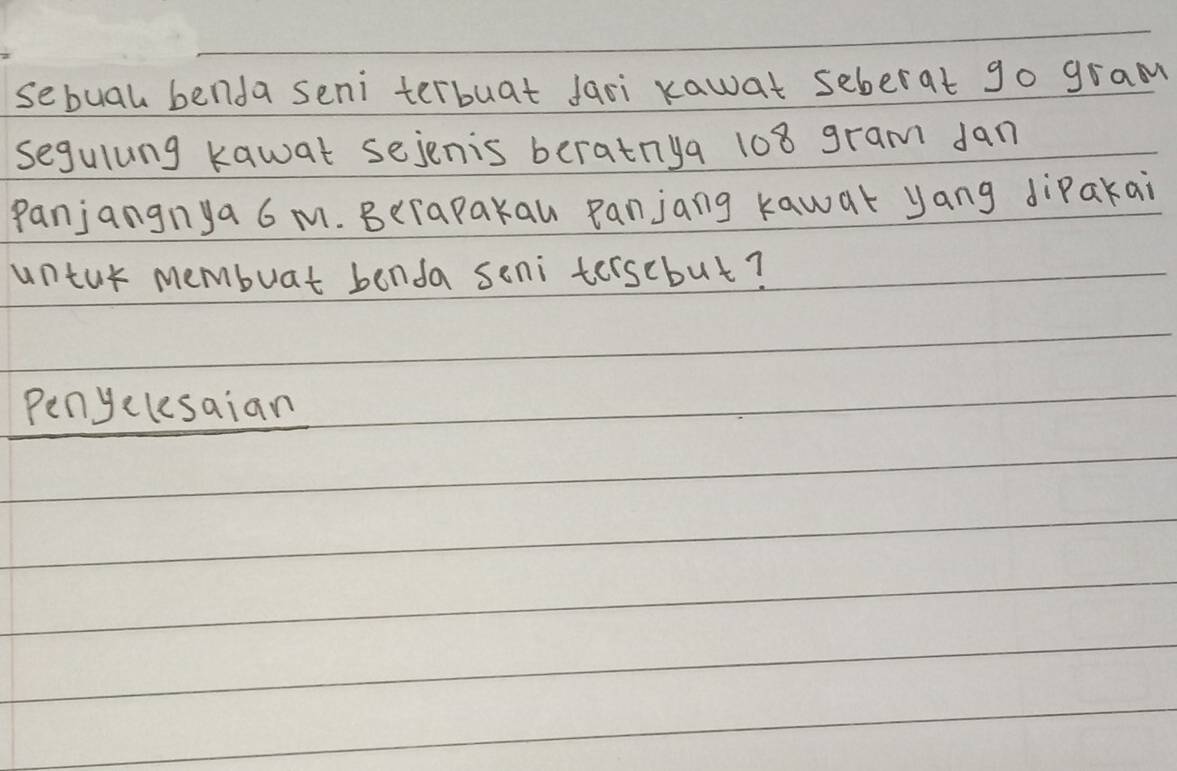 Sebuah benda seni terbuat dari kawat seberat 90 gram
segulung kawat sejenis beratnya 108 gram dan
panjangnya 6 m. Berapakah panjang kawat yang dipakai
untuk membuat benda seni tersebut?
Penyelesaian